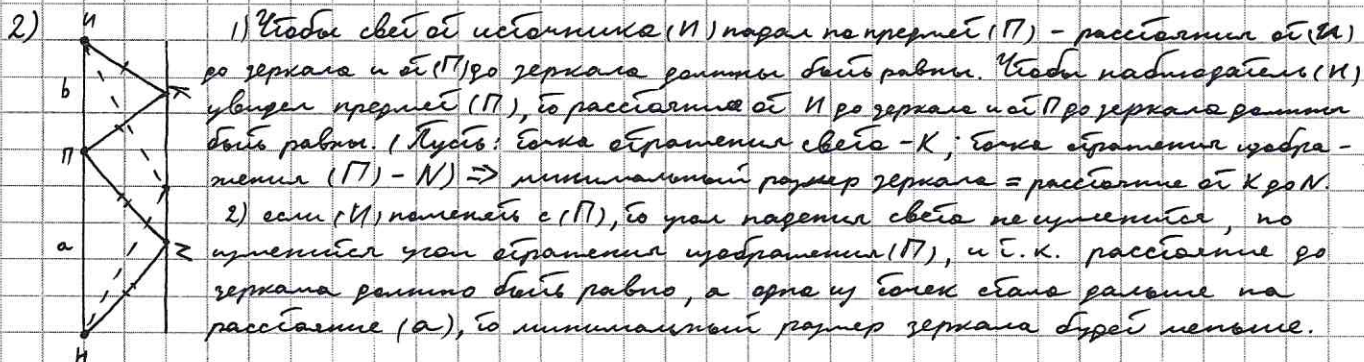 2)
И
b
К
П
a
N
Н
1) Чтобы свет от источника (И) падал на предмет (П) - расстояния от (И)
до зеркала и от (П) до зеркала должны быть равны. Чтобы наблюдатель (Н)
увидел предмет (П), то расстояние от Н до зеркала и от П до зеркала должны
быть равны. (Пусть: точка отражения света - К; точка отражения изобра-
жения (П) - N) => минимальный размер зеркала = расстояние от К до N.
2) если (И) поменять с (П), то угол падения света не изменится, но
изменится угол отражения изображения (П), и т.к. расстояние до
зеркала должно быть равно, а одна из точек стала дальше на
расстояние (a), то минимальный размер зеркала будет меньше.